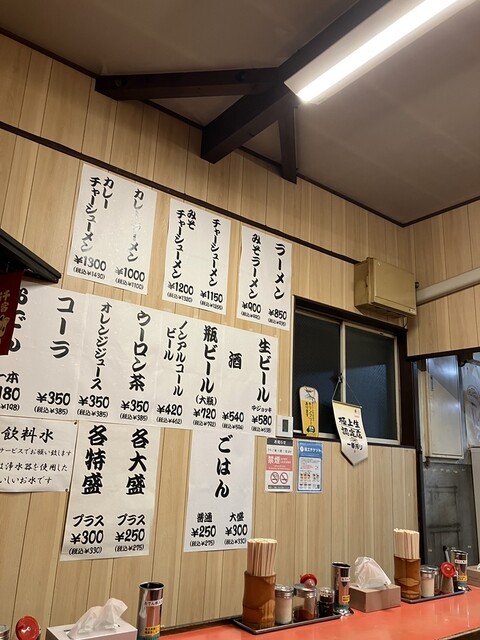 ラーメン
¥850
みそラーメン
¥900
チャーシューメン
¥1150
みそ
チャーシューメン
¥1200
¥1000
(税込¥1100)
カレー
チャーシューメン
¥1300
(税込¥1430)
生ビール
中ジョッキ
¥580
酒
¥540
瓶ビール
(大瓶)
¥720
ノンアルコール
ビール
¥420
(税込¥462)
ウーロン茶
¥350
(税込¥385)
オレンジジュース
¥350
(税込¥385)
コーラ
¥350
(税込¥385)
ごはん
大盛
¥300
(税込¥330)
普通
¥250
(税込¥275)
各大盛
プラス
¥250
(税込¥275)
各特盛
プラス
¥300
(税込¥330)
飲料水
サービスでお願い致します
は浄水器を使用した
いしいお水です
禁煙
極上生
認定店
一番搾り